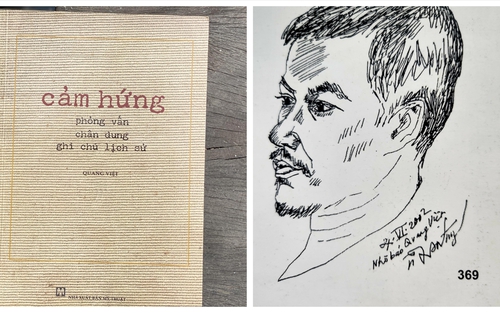 cảm hứng
phỏng vấn
chân dung
ghi chú lịch sử
QUANG VIỆT
NHÀ XUẤT BẢN MỸ THUẬT
VI-2002
Nhà báo Quang Việt
369